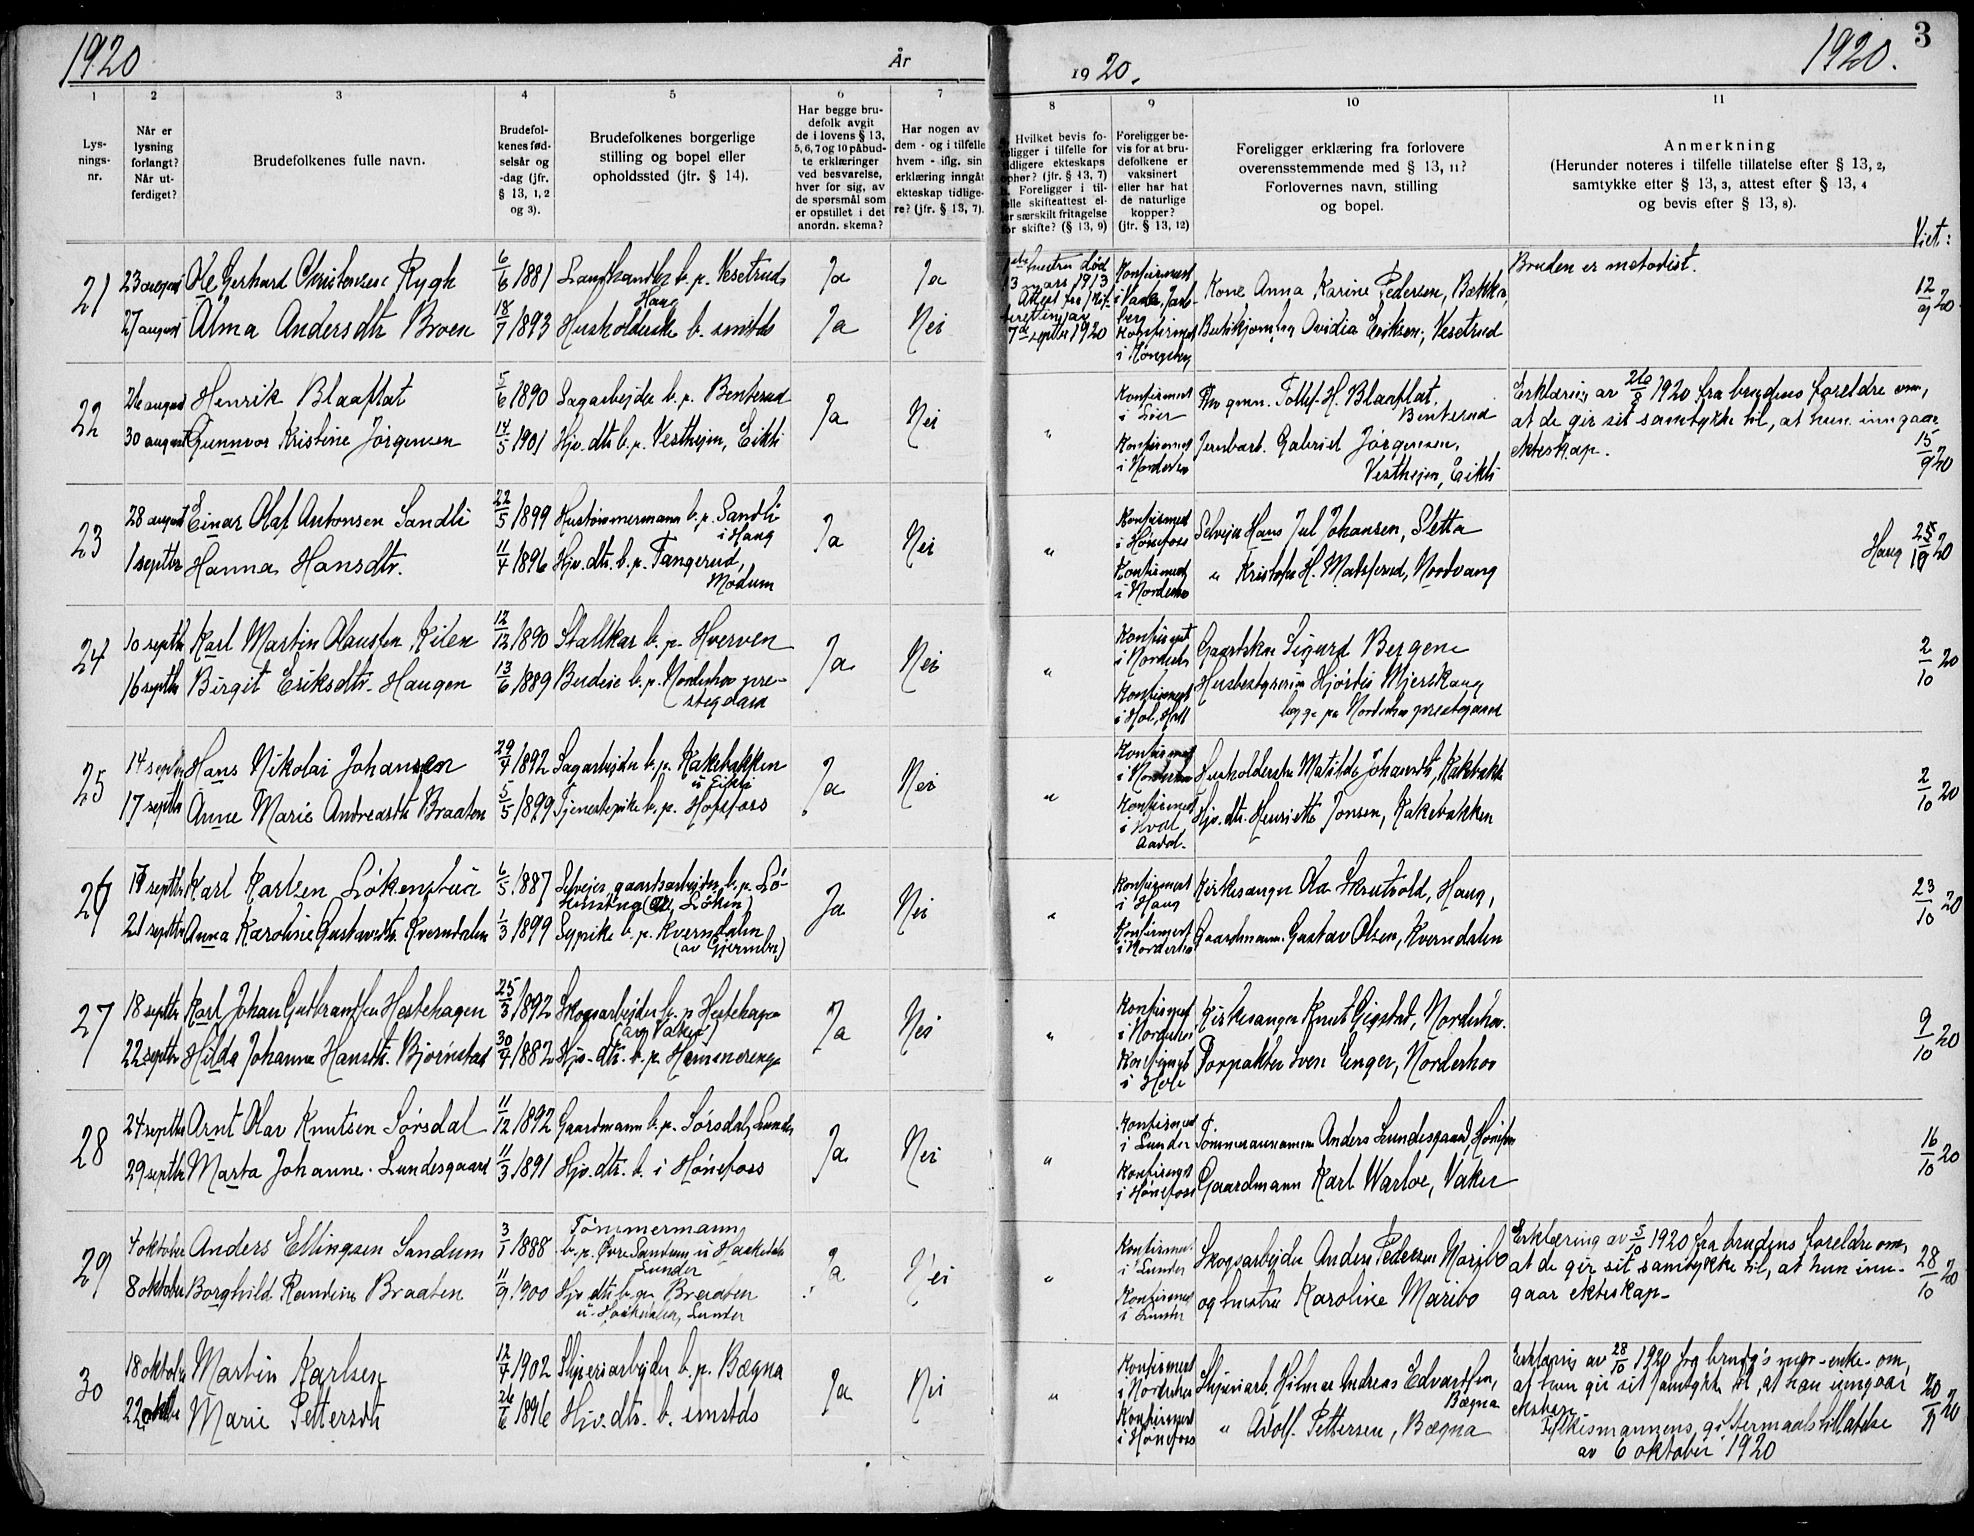 1920
År
1920.
1920.
3
1
2
3
4
5
6
7
8
9
10
11
Lys-
nings-
nr.
Når er
lysning
forlangt?
Når ut-
ferdiget?
Brudefolkenes fulle navn.
Brudefol-
kenes fød-
selsår og
-dag (jfr.
§ 13, 1, 2
og 3).
Brudefolkenes borgerlige
stilling og bopel eller
opholdssted (jfr. § 14).
Har begge bru-
defolk avgit
de i lovens § 13,
5, 6, 7 og 10 påbud-
te erklæringer
ved besvarelse,
hver for sig, av
de spørsmål som
er opstillet i det
anordn. skema?
Har nogen av
dem - og i tilfelle
hvem - iflg. sin
erklæring inngåt
ekteskap tidlige-
re? (jfr. § 13, 7).
Hvilket bevis fo-
religger i tilfelle for
tidligere ekteskaps
ophør? (jfr. § 13, 7)
Foreligger i til-
felle skifteattest el-
ler særskilt fritagelse
for skifte? (§ 13, 9)
Foreligger be-
vis for at bru-
defolkene er
vaksinert
eller har hat
de naturlige
kopper?
(jfr. § 13, 12)
Foreligger erklæring fra forlovere
overensstemmende med § 13, 11?
Forlovernes navn, stilling
og bopel.
Anmerkning
(Herunder noteres i tilfelle tillatelse efter § 13, 2,
samtykke efter § 13, 3, attest efter § 13, 4
og bevis efter § 13, 8).
Viet:
21
23 august Ole Gerhard Christensen Rygh 6/6 1881 Landhandler b. p. Vesetrud Ja Ja
Haug
27 august Alma Andersdtr Broen 18/7 1893 Husholderske b. smstds Ja Nei
hustru død 13 mars 1913
Attest fra
7de septbr 1920
Konfirmert
Konfirmert
Kone Anna Karine Pedersen, Bakke
Eriksen, Vesetrud
Bruden er metodist.
12/9 20
22
26 august Henrik Blaaflat 5/6 1890 Sagarbejder b. p. Benterud Ja Nei
30 august Gunnvor Kristine Jörgensen 14/5 1901 Hjv. dtr b. p. Vestheim, Eikli
" Konfirmert
i Lier
Konfirmert
i Norderhov
H. Blaaflat,
Benterud
Jernbarb. Gabriel Jörgensen,
Vestheim, Eikli
Erklæring av 26/8 1920 fra brudens foreldre om,
at de gir sit samtykke til, at hun inngaar
ekteskap.
15/9 20
23
28 august Einar Olaf Antonsen Sandli 22/5 1899 Hustömmermann b. p. Sandli
i Haug
Ja Nei
1 septbr Hanna Hansdtr. 11/4 1896 Hjv. dtr. b. p. Tangerud,
Modum
" Konfirmert
i Hönefoss
Konfirmert
i Norderhov
Selveier Hans Jul Johansen, Sletta
" Kristofer H. Madserud, Nordvang
Haug 25/9 20
24
10 septbr Karl Martin Olausen Kilen 12/12 1890 Stallkar b. p. Hverven Ja Nei
16 septbr Birgit Eriksdtr. Haugen 13/6 1889 Budeie b. p. Norderhov pre-
stegaard
" Konfirmert
i Norderhov
Konfirmert
i Hol, Hall
Gaardskar Sigurd Bergene
Husbestyrerin Hjördis Mjerskaug
begge pa Norderhov prestegaard
2/10 20
25
14 septbr Hans Nikolai Johansen 29/4 1892 Sagarbejder b. p. Kakebakken
u. Eikli
Ja Nei
17 septbr Anne Marie Andreasdtr Braaten 5/5 1899 Tjenestepike b. p. Hofsfoss
" Konfirmert
i Norderhov
Konfirmert
i Hval,
Aadal.
Husholderske Matilde Johansdtr, Kakebakken
Hjv. dtr. Henriette Jonsen, Kakebakken
2/10 20
26
septbr Karl Karlsen Lökenstua 6/5 1887 Selveier, gaardsarbejder b. p. Lö-
kenstua (av Löken)
Ja Nei
21 septbr Anna Karoline Gustavsdtr. Kverndalen 1/3 1899 Sypike b. p. Kverndalen
(av Gjermbo)
" Konfirmert
i Haug
Konfirmert
i Norderhov
Kirkesanger Ola Skrutvold, Haug,
Gaardmann Gustav Olsen, Kverndalen
23/10 20
27
18 septbr Karl Johan Gulbrandsen Hestehagen 25/3 1892 Skogsarbejder b. p. Hestehagen
(av Vaker)
Ja Nei
22 septbr Hilda Johanne Hansdtr. Bjoinstad 30/4 1882 Hjv. dtr. b. p. Hemsnerenge
" Konfirmert
i Norderhov
Konfirmert
i Hole
Kirkesanger Knut Gigstad, Norderhov.
Forpakter Sven Enger, Norderhov
9/10 20
28
24 septbr Arnt Olav Knutsen Sörsdal 11/12 1892 Gaardmann b. p. Sörsdal, Lunder Ja Nei
29 septbr Marta Johanne Lundesgaard 11/3 1891 Hjv. dtr. b. i Hönefoss
" Konfirmert
i Lunder
Konfirmert
i Hönefoss
Tömmerannammer Anders Lundesgaard, Hönefoss
Gaardmann Karl Warloe, Vaker
16/10 20
29
4 oktober Anders Ellingsen Sandum 3/1 1888 Tömmermann
b. p. Övre Sandum u Haakedalen
Lunder
Ja Nei
8 oktober Borghild Randine Braaten 11/9 1900 Hjv. dtr b. p. Braaten
u. Haakedalen, Lunder
" Konfirmert
i Lunder
Konfirmert
i Lunder
Skogsarbejder Anders Pedersen Maribo
og hustru Karoline Maribo
Erklæring av 5/10 1920 fra brudens foreldre om,
at de gir sit samtykke til, at hun inn-
gaar ekteskap.
28/10 20
30
18 oktober Martin Karlsen 12/4 1902 Sliperiarbejder b. p. Bægna Ja Nei
22 oktbr Marie Pettersdtr 26/6 1896 Hjv. dtr. b. smstds
" Konfirmert
i Norderhov
Konfirmert
i Hönefoss
Sliperiarb. Hilmar Andreas Edvardsen,
Bægna
" Adolf Pettersen, Bægna
Erklæring av 28/10 1920 fra brudg's mor - enke - om,
at hun gir sit samtykke til, at han inngaar
ekteskap.
Fylkesmannens giftermaalstillatelse
av 6 oktober 1920
20/11 20